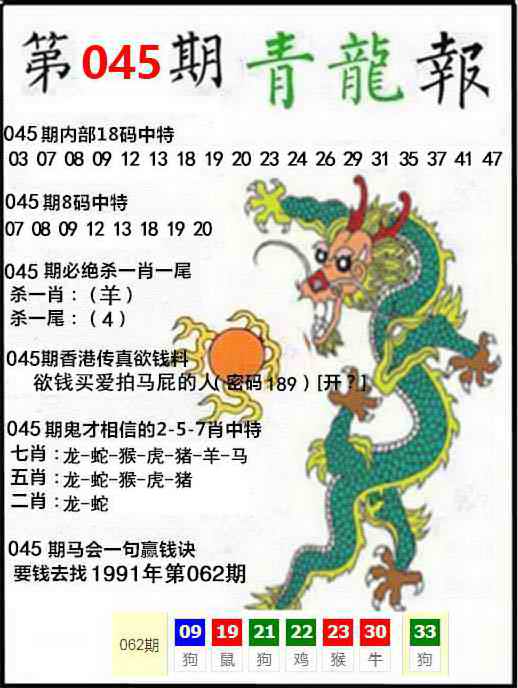 第045期 青龍報
045期内部18码中特
03 07 08 09 12 13 18 19 20 23 24 26 29 31 35 37 41 47
045期8码中特
07 08 09 12 13 18 19 20
045 期必绝杀一肖一尾
杀一肖：（羊）
杀一尾：（4）
045期香港传真欲钱料
欲钱买爱拍马屁的人（密码189）[开？]
045期鬼才相信的2-5-7肖中特
七肖：龙-蛇-猴-虎-猪-羊-马
五肖：龙-蛇-猴-虎-猪
二肖：龙-蛇
045 期马会一句赢钱诀
要钱去找1991年第062期
062期 09 19 21 22 23 30 33
狗 鼠 狗 鸡 猴 牛 狗